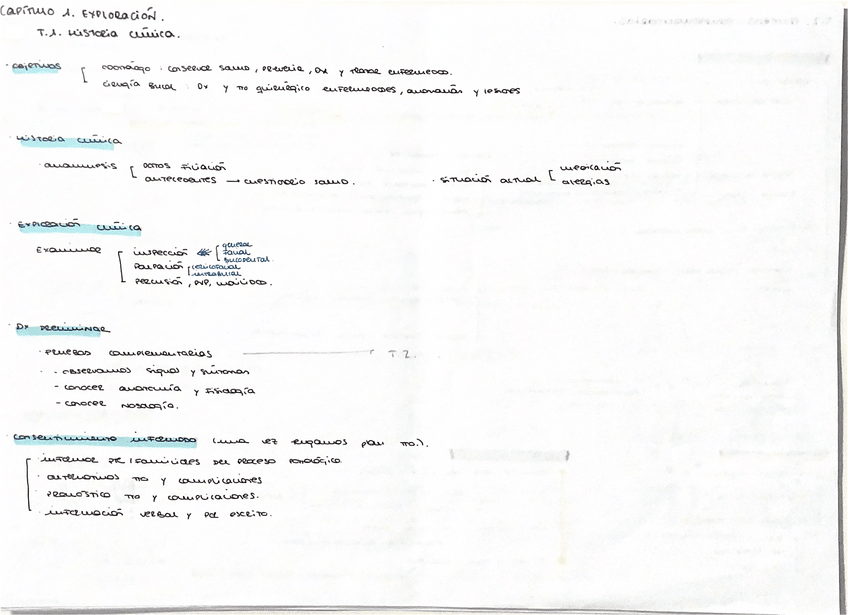 CAPÍTULO 1. EXPLORACIÓN.
T.1. Historia clínica.
· Objetivos
odontólogo : conservar salud, prevenir, Dx y tratar enfermedad.
cirugía bucal : Dx y tto quirúrgico enfermedades, anomalías y lesiones
· Historia clínica
· anamnesis
datos filiación
antecedentes → cuestionario salud.
· situación actual
medicación
alergias
· Exploración clínica
Examinar
inspección
general
facial
bucodental
palpación
cervicofacial
intrabucal
percusión, PVP, movilidad.
· Dx preliminar
· Pruebas complementarias T.2.
· - observamos signos y síntomas
- conocer anatomía y fisiología
- conocer nosología.
· Consentimiento informado (una vez tengamos plan tto.).
· informar pte/familiares del proceso patológico.
· alternativas tto y complicaciones
· pronóstico tto y complicaciones.
· información verbal y por escrito.